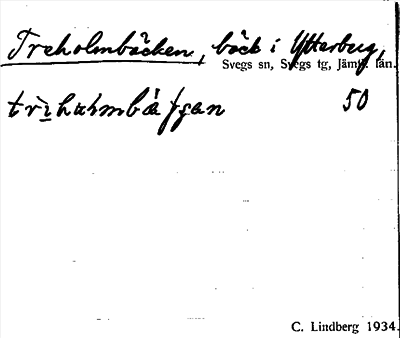 Treholmbäcken, bäck i Ytterberg,
Svegs sn, Svegs tg, Jämtl. län.
50
C. Lindberg 1934.